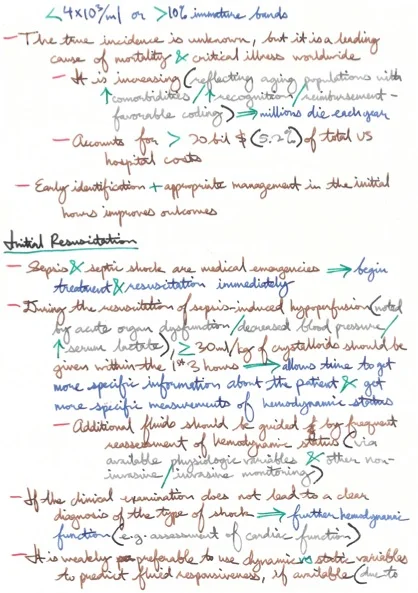 < 4x10³/ml or >10% immature bands
— The true incidence is unknown, but it is a leading
cause of mortality & critical illness worldwide
— It is increasing (reflecting aging populations with
↑ comorbidities / ↑ recognition / reimbursement-
favorable coding) ⇒ millions die each year
— Accounts for > 20 bil $ (5.2%) of total US
hospital costs
— Early identification + appropriate management in the initial
hours improves outcomes
Initial Resuscitation
— Sepsis & septic shock are medical emergencies ⇒ begin
treatment & resuscitation immediately
— During the resuscitation of sepsis-induced hypoperfusion (noted
by acute organ dysfunction / decreased blood pressure /
↑ serum lactate), ≥ 30ml/kg of crystalloids should be
given within the 1st 3 hours ⇒ allows time to get
more specific information about the patient & get
more specific measurements of hemodynamic status
— Additional fluids should be guided by frequent
reassessment of hemodynamic status (via
available physiologic variables & other non-
invasive / invasive monitoring)
— If the clinical examination does not lead to a clear
diagnosis of the type of shock ⇒ further hemodynamic
function (e.g. assessment of cardiac function)
— It is weakly preferable to use dynamic vs static variables
to predict fluid responsiveness, if available (due to